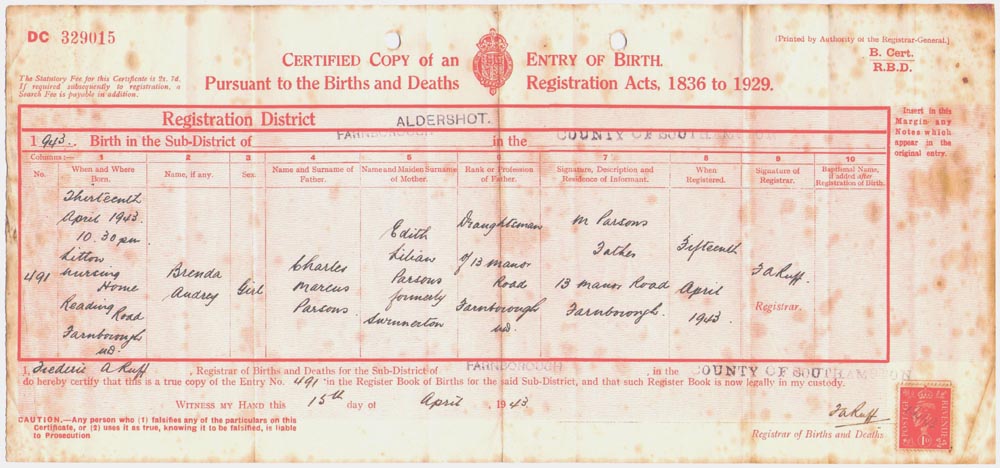 DC 329015
(Printed by Authority of the Registrar-General.)
B. Cert.
R.B.D.
CERTIFIED COPY of an ENTRY OF BIRTH.
Pursuant to the Births and Deaths Registration Acts, 1836 to 1929.
The Statutory Fee for this Certificate is 2s. 7d.
If required subsequently to registration, a
Search Fee is payable in addition.
Registration District ALDERSHOT.
1943. Birth in the Sub-District of FARNBOROUGH in the COUNTY OF SOUTHAMPTON
Insert in this
Margin any
Notes which
appear in the
original entry.
Columns:— 1 2 3 4 5 6 7 8 9 10
No. When and Where Born. Name, if any. Sex. Name and Surname of Father. Name and Maiden Surname of Mother. Rank or Profession of Father. Signature, Description and Residence of Informant. When Registered. Signature of Registrar. Baptismal Name, if added after Registration of Birth.
491
Thirteenth
April 1943.
10.30 pm
Litton
Nursing
Home
Reading
Road
Farnborough
U.D.
Brenda
Audrey
Girl
Charles
Marcus
Parsons.
Edith
Lilian
Parsons
formerly
Swinnerton
Draughtsman
of 13 Manor
Road
Farnborough
U.D.
M Parsons
Father
13 Manor Road
Farnborough.
Fifteenth
April
1943.
F A Ruff.
Registrar.
I, Frederic A Ruff, Registrar of Births and Deaths for the Sub-District of FARNBOROUGH, in the COUNTY OF SOUTHAMPTON,
do hereby certify that this is a true copy of the Entry No. 491 in the Register Book of Births for the said Sub-District, and that such Register Book is now legally in my custody.
WITNESS MY HAND this 15th day of April, 1943
CAUTION.—Any person who (1) falsifies any of the particulars on this
Certificate, or (2) uses it as true, knowing it to be falsified, is liable
to Prosecution
F A Ruff
Registrar of Births and Deaths
POSTAGE
REVENUE